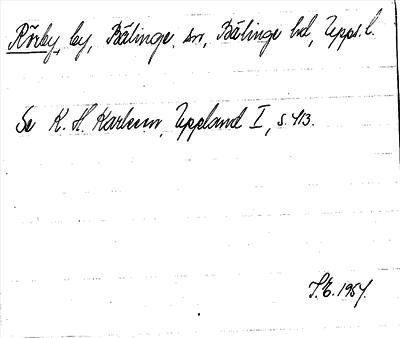 Rörby, by, Bälinge sn, Bälinge hd, Upps. l.
Se K. H. Karlsson, Uppland I, s. 413.
S.E. 1954.